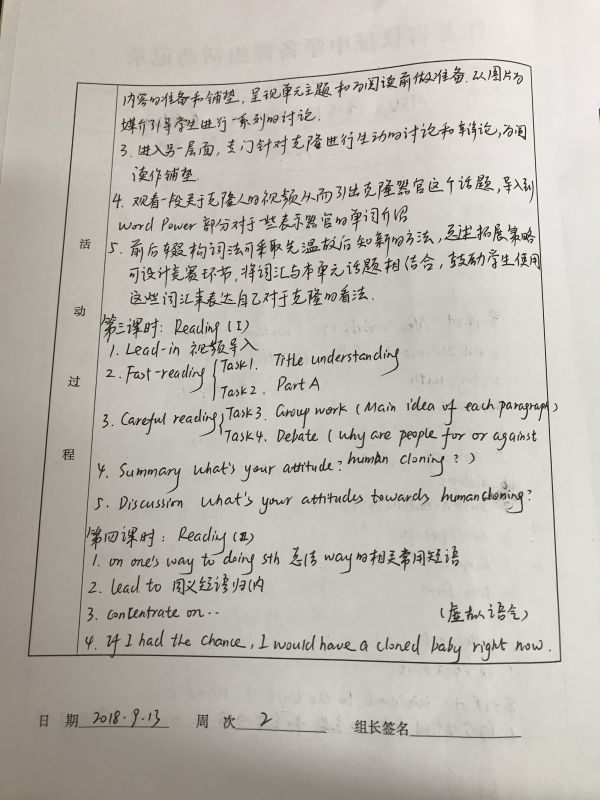 内容的准备和铺垫，呈现单元主题和为阅读前做准备.以图片为
媒介引导学生进行一系列的讨论.
3. 进入另一层面，专门针对克隆进行生动的讨论和辩论，为阅
读作铺垫.
4. 观看一段关于克隆人的视频从而引出克隆器官这个话题，导入到
Word Power 部分对于一些表示器官的单词介绍
5. 前后缀构词法可采取先温故后知新的方法，拓展策略
可设计竞赛环节，将词汇与本单元话题相结合，鼓励学生使用
这些词汇来表达自己对于克隆的看法.
活动过程
第三课时：Reading (I)
1. Lead-in 视频导入
2. Fast-reading { Task1. Title understanding
Task2. Part A
3. Careful reading { Task3. Group work (Main idea of each paragraph)
Task4. Debate (why are people for or against
human cloning?)
4. Summary what's your attitude?
5. Discussion what's your attitudes towards human cloning?
第四课时：Reading (II)
1. on one's way to doing sth 总结way的相关常用短语
2. lead to 同义短语归纳
3. concentrate on..
(虚拟语气)
4. If I had the chance, I would have a cloned baby right now.
日 期 2018.9.13 周 次 2 组长签名